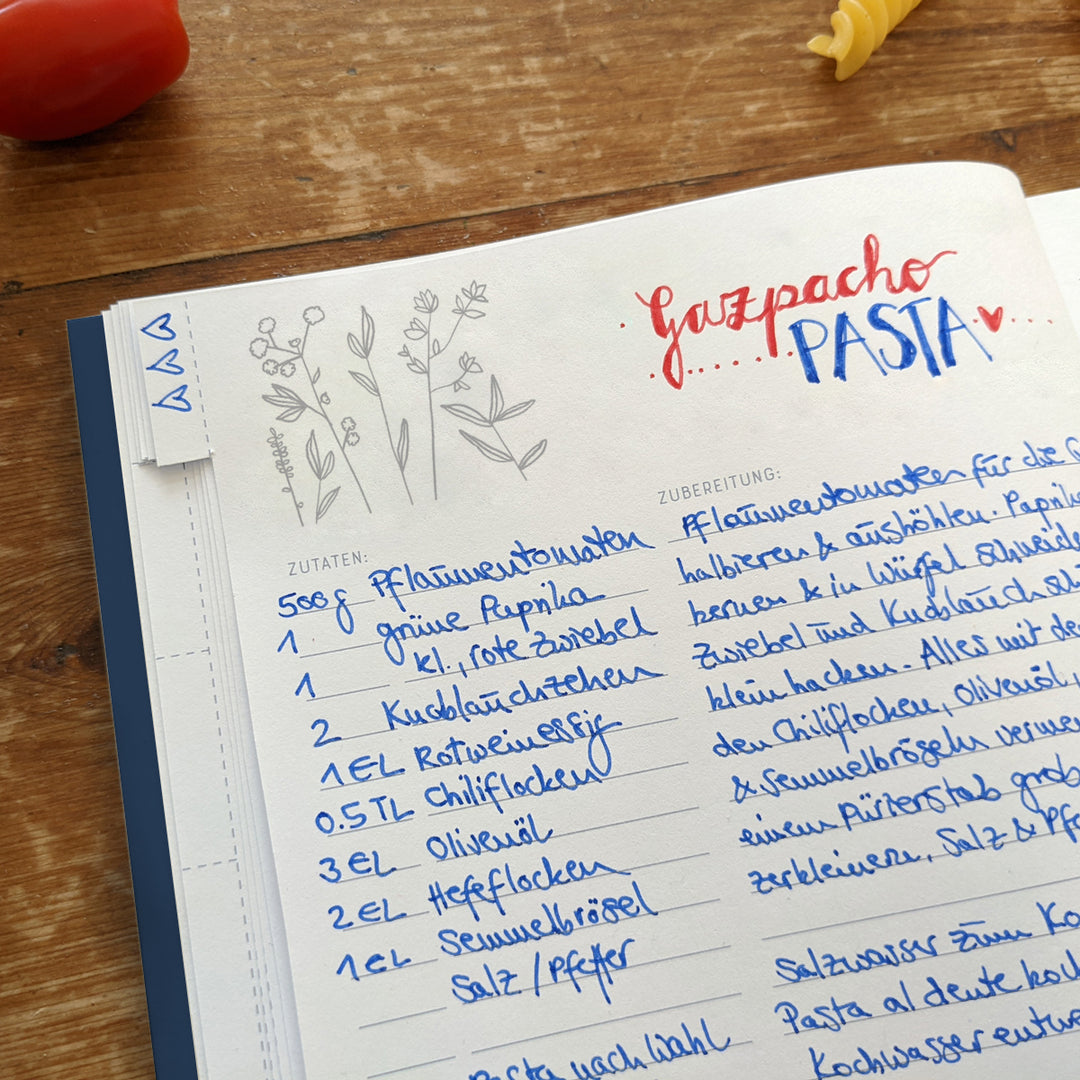 Gazpacho
PASTA
ZUTATEN:
500 g Pflaumentomaten
1 grüne Paprika
1 kl., rote Zwiebel
2 Knoblauchzehen
1 EL Rotweinessig
0.5 TL Chiliflocken
3 EL Olivenöl
2 EL Hefeflocken
1 EL Semmelbrösel
Salz / Pfeffer
Pasta nach Wahl
ZUBEREITUNG:
Pflaumentomaten für die
halbieren & aushöhlen. Paprika
kernen & in Würfel
Zwiebel und Knoblauch
klein hacken. Alles mit
den Chiliflocken, Olivenöl,
& Semmelbröseln
einem Pürierstab grob
zerkleinern, Salz &
Salzwasser zum
Pasta al dente
Kochwasser